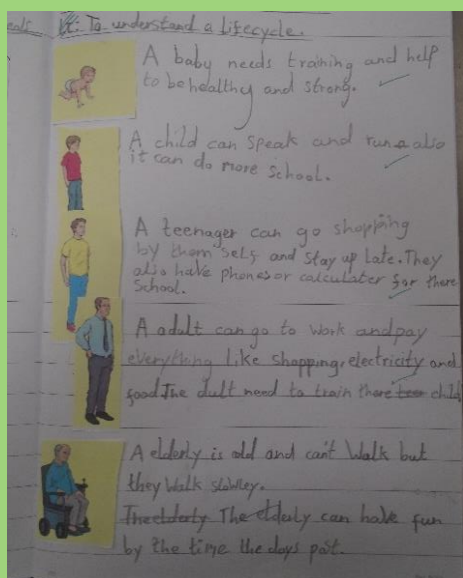 eals
It: To understand a lifecycle.
A baby needs training and help
to be healthy and strong.
A child can speak and run also
it can do more school.
A teenager can go shopping
by them self and stay up late. They
also have phones or calculater for there
School.
A adult can go to work and pay
everything like shopping, electricity and
food. The dult need to train there child
A elderly is old and can't walk but
they walk slowley.
The elderly The elderly can have fun
by the time the days pat.